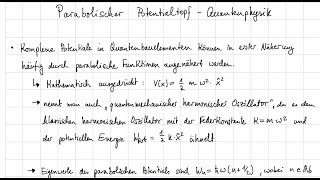 Parabolischer Potentialtopf - Quantenphysik
• Komplexe Potentiale in Quantenbauelementen können in erster Näherung
häufig durch parabolische Funktionen angenähert werden.
↳ Mathematisch ausgedrückt: V(x) = 1/2 m ω² · x̂²
→ nennt man auch „quantenmechanischer harmonischer Oszillator", da er dem
klassischen harmonischen Oszillator mit der Federkonstante K = m ω² und
der potentiellen Energie W_pot = 1/2 k · x̂² ähnelt.
→ Eigenwerte des parabolischen Potentials sind W_n = ħω(n + 1/2), wobei n ∈ ℕ₀